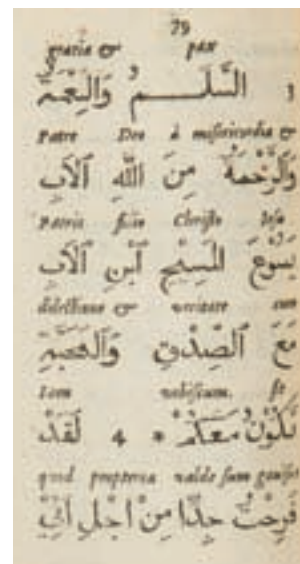 79
gratia & pax
3 السَّلَـــمُ وَالنِّعْمَةُ
Patre Deo à misericordia &
وَالرَّحْمَةُ مِنَ اللّٰهِ الْآبِ
Patris filio Christo Iesu
يَسُوعَ الْمَسِيْحِ ٱبْنِ الْآبِ
dilectione & veritate cum
مَعَ الصِّدْقِ وَالْمَحَبَّةِ
vobiscum. sit
تَكُوْنُ مَعَكُمْ * 4 لَقَدْ
quod propterea valde sum gauisus
فَرِحْتُ جِدًّا مِنْ اَجْلِ اَنِّيْ